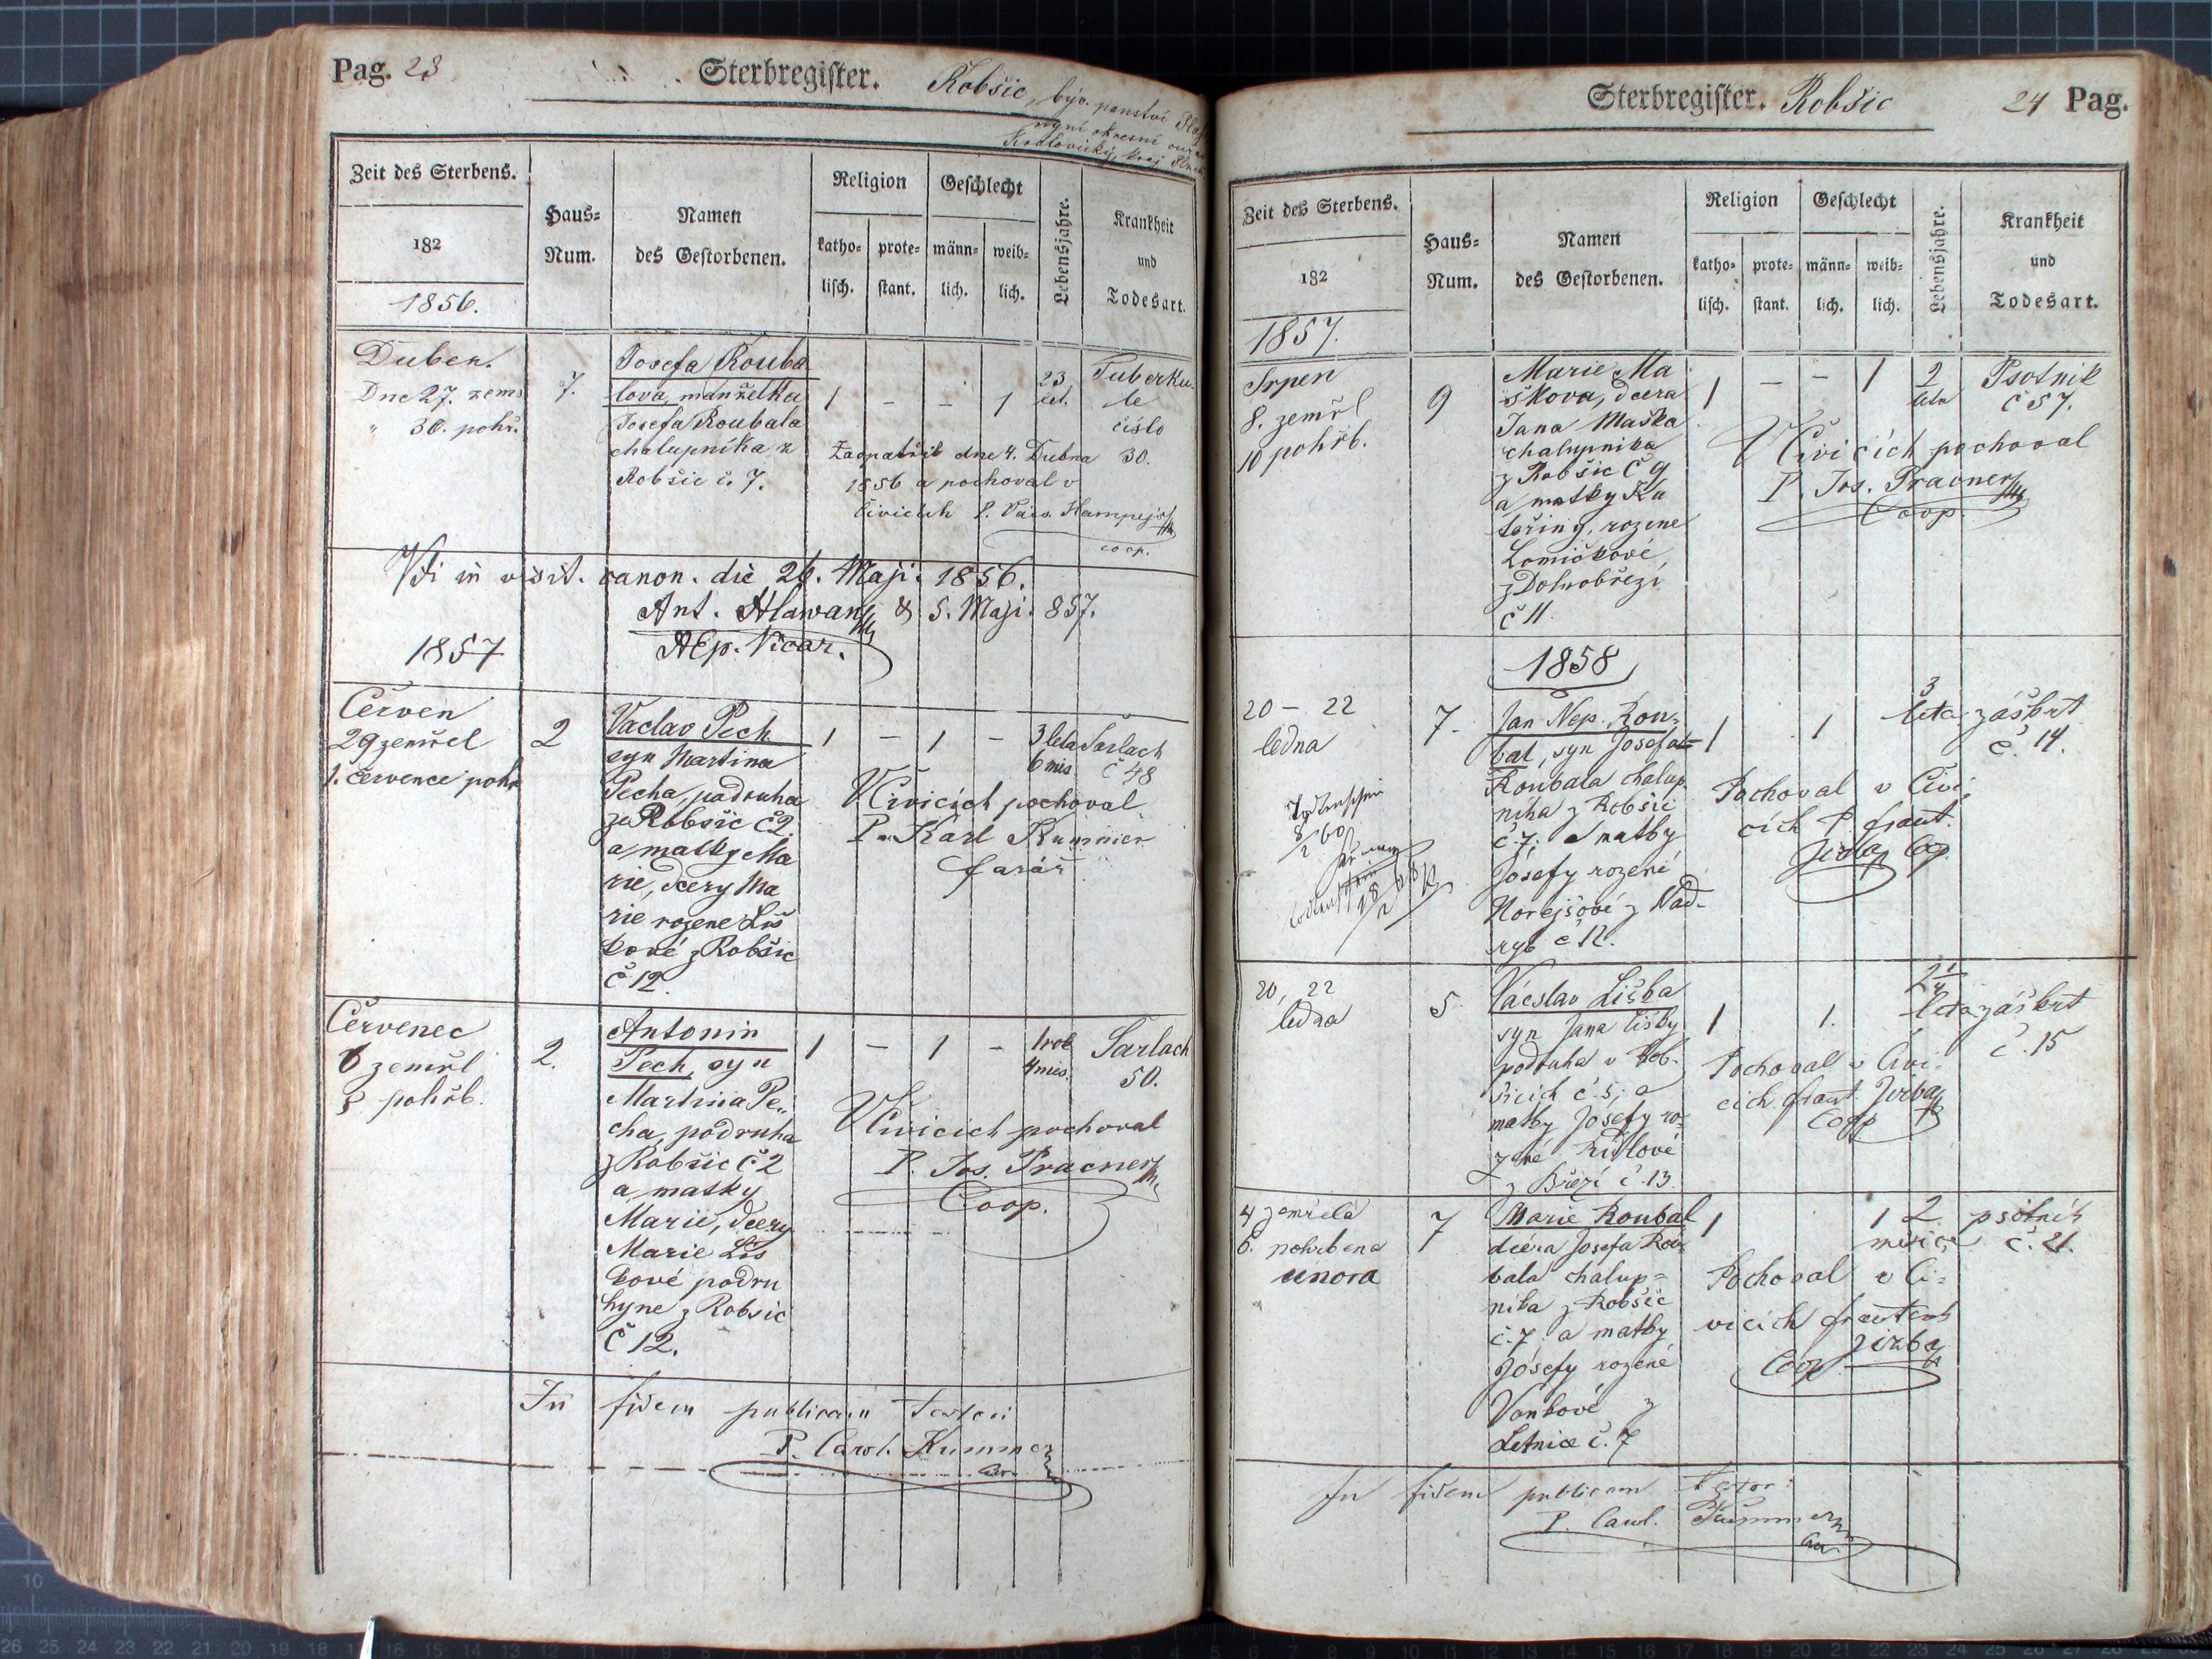 Pag. 23
Sterbregister.
Robšic, býv. panství
nyní okresní
Kralovický, kraj
Zeit des Sterbens.
182
1856.
Haus=
Num.
Namen
des Gestorbenen.
Religion
katho=
lisch.
prote=
stant.
Geschlecht
männ=
lich.
weib=
lich.
Lebensjahre.
Krankheit
und
Todesart.
Duben.
Dne 27. zem.
" 30. pohř.
7.
Josefa Rouba
lova, manželka
Josefa Roubala
chalupníka z
Robšic č. 7.
1 - - 1
23
let.
Tuberku-
le
číslo
30.
Zaopatřil dne 4. Dubna
1856 a pochoval v
Čivicích P. Vács. Hampejs
coop.
Vdi in visit. canon. die 26. Maji. 1856.
Ant. Hlawan & 5. Maji. 857.
Aep. Vicar.
1857
Červen
29 zemřel
1. července pohř
2
Vaclav Pech
syn Martina
Pecha, podruha
ze Robšic č 2
a matky Ma
rie, dcery Ma
rie rozene Liš
kové z Robšic
č 12.
1 - 1 -
3 leta
6 mis
Šarlach
č 48
V Čivicích pochoval
P. Karl Kummer
farář
Červenec
6 zemřl
8 pohřb.
2.
Antonin
Pech, syn
Martina Pe„
cha, podruha
z Robšic č 2
a matky
Marie, dcery
Marie Liš
kové podru
hyne z Robsic
Č 12.
1 - 1 -
1 rok
4 mis.
Šarlach
50.
V Čivicich pochoval
P. Jos. Pracner
Coop.
In fidem publicam testor
P. Carol. Kummer
Sterbregister. Robšic
24 Pag.
Zeit des Sterbens.
182
1857.
Haus=
Num.
Namen
des Gestorbenen.
Religion
katho=
lisch.
prote=
stant.
Geschlecht
männ=
lich.
weib=
lich.
Lebensjahre.
Krankheit
und
Todesart.
Srpen
8. zemřl
10 pohřb.
9
Marie Ma
škova, dcera
Jana Maška
chalupnika
z Robšic č 9
a matky Ka
teřiny, rozene
Lomičkové,
z Dolnobřezí
č 11
1 - - 1
2
leta
Psotnik
č 57.
V Čivicích pochoval
P. Jos. Pracner
Coop.
1858
20 - 22
ledna
7.
Jan Nep. Rou-
bal, syn Josefa
Roubala chalup
níka z Robšic
č. 7; a matky
Josefy rozené
Hořejšové z Nad-
ryb č 12.
1 1
3
leta
záškrt
č. 14.
Pochoval v Čivi
cích P. frant.
Jirba Coop.
20, 22
ledna
5.
Vácslav Liška
syn Jana Lišky
podruha v Rob-
šicích č. 5; a
matky Josefy ro-
zené
z Březí č. 13
1 1.
leta
záškrt
č. 15
Pochoval v Čivi-
cích frant. Jirba
Coop
4 zemřela
6. pohřbena
unora
7
Marie Roubal
dcera Josefa Rou-
bala chalup=
níka z Robšic
č. 7 a matky
Josefy rozené
Vaňkové z
Letnice č. 7
1 1
2
měsíce
psotník
č. 21.
Pochoval v Či=
vicích frantešk
Jirba
Coop
In fidem publicam testor:
P. Carol. Kummer